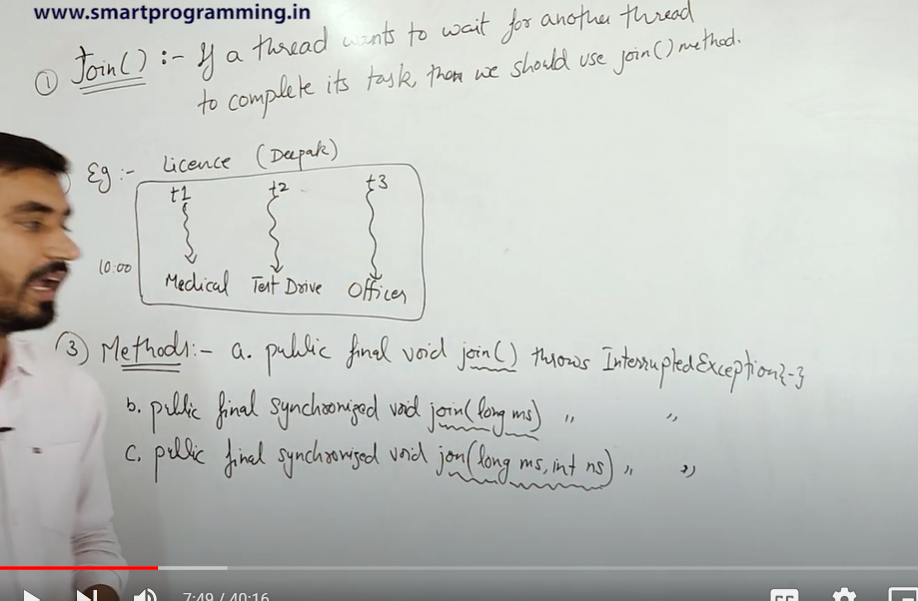 www.smartprogramming.in
① Join() :- If a thread wants to wait for another thread
to complete its task, then we should use join() method.
Eg :- Licence (Deepak)
t1 t2 t3
10:00 Medical Test Drive Officer
③ Methods:- a. public final void join() throws InterruptedException{-}
b. public final synchronized void join(long ms) " "
c. public final synchronized void join(long ms, int ns) " "
7:49 / 40:16
CC